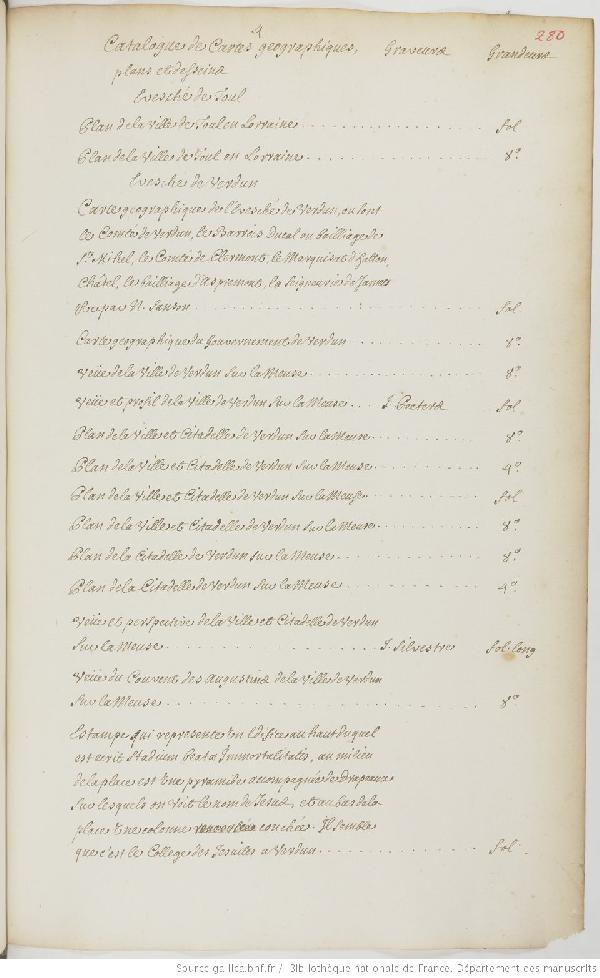 4
280
Catalogue de Cartes geographiques, Graveurs Grandeurs
plans et desseins
Evesché de Toul
Plan de la Ville de Toul en Lorraine fol
Plan de la Ville de Toul en Lorraine 8º
Evesché de Verdun
Carte geographique de l'Evesché de Verdun, ou sont
le Comté de Verdun, le Barrois Ducal ou bailliage de
St. Mihel, le Comté de Clermont, le Marquisat d'hatton
Chatel, le bailliage d'Aspremont, la Seigneurie de Jametz
par N. Sanson fol
Carte geographique du Gouvernement de Verdun 8º
Veüe de la Ville de Verdun sur la Meuse 8º
Veüe et profil de la Ville de Verdun sur la Meuse J. Peeters fol
Plan de la Ville et Citadelle de Verdun sur la Meuse 8º
Plan de la Ville et Citadelle de Verdun sur la Meuse 4º
Plan de la Ville et Citadelle de Verdun sur la Meuse fol
Plan de la Ville et Citadelle de Verdun sur la Meuse 8º
Plan de la Citadelle de Verdun sur la Meuse 8º
Plan de la Citadelle de Verdun sur la Meuse 4º
Veüe et perspective de la Ville et Citadelle de Verdun
sur la Meuse J. Silvestre fol. long
Veüe du Couvent des Augustins de la Ville de Verdun
sur la Meuse 8º
Estampe qui represente un Edifice au haut duquel
est ecrit Stadium beatæ Immortalitatis, au milieu
de la place est une pyramide acompagnée de Drapeaux
sur lesquels on voit le nom de Jesus, et au bas de la
place une colonne couchée. Il semble
que c'est le College des Jesuites a Verdun fol
Source gallica.bnf.fr / Bibliothèque nationale de France. Département des manuscrits